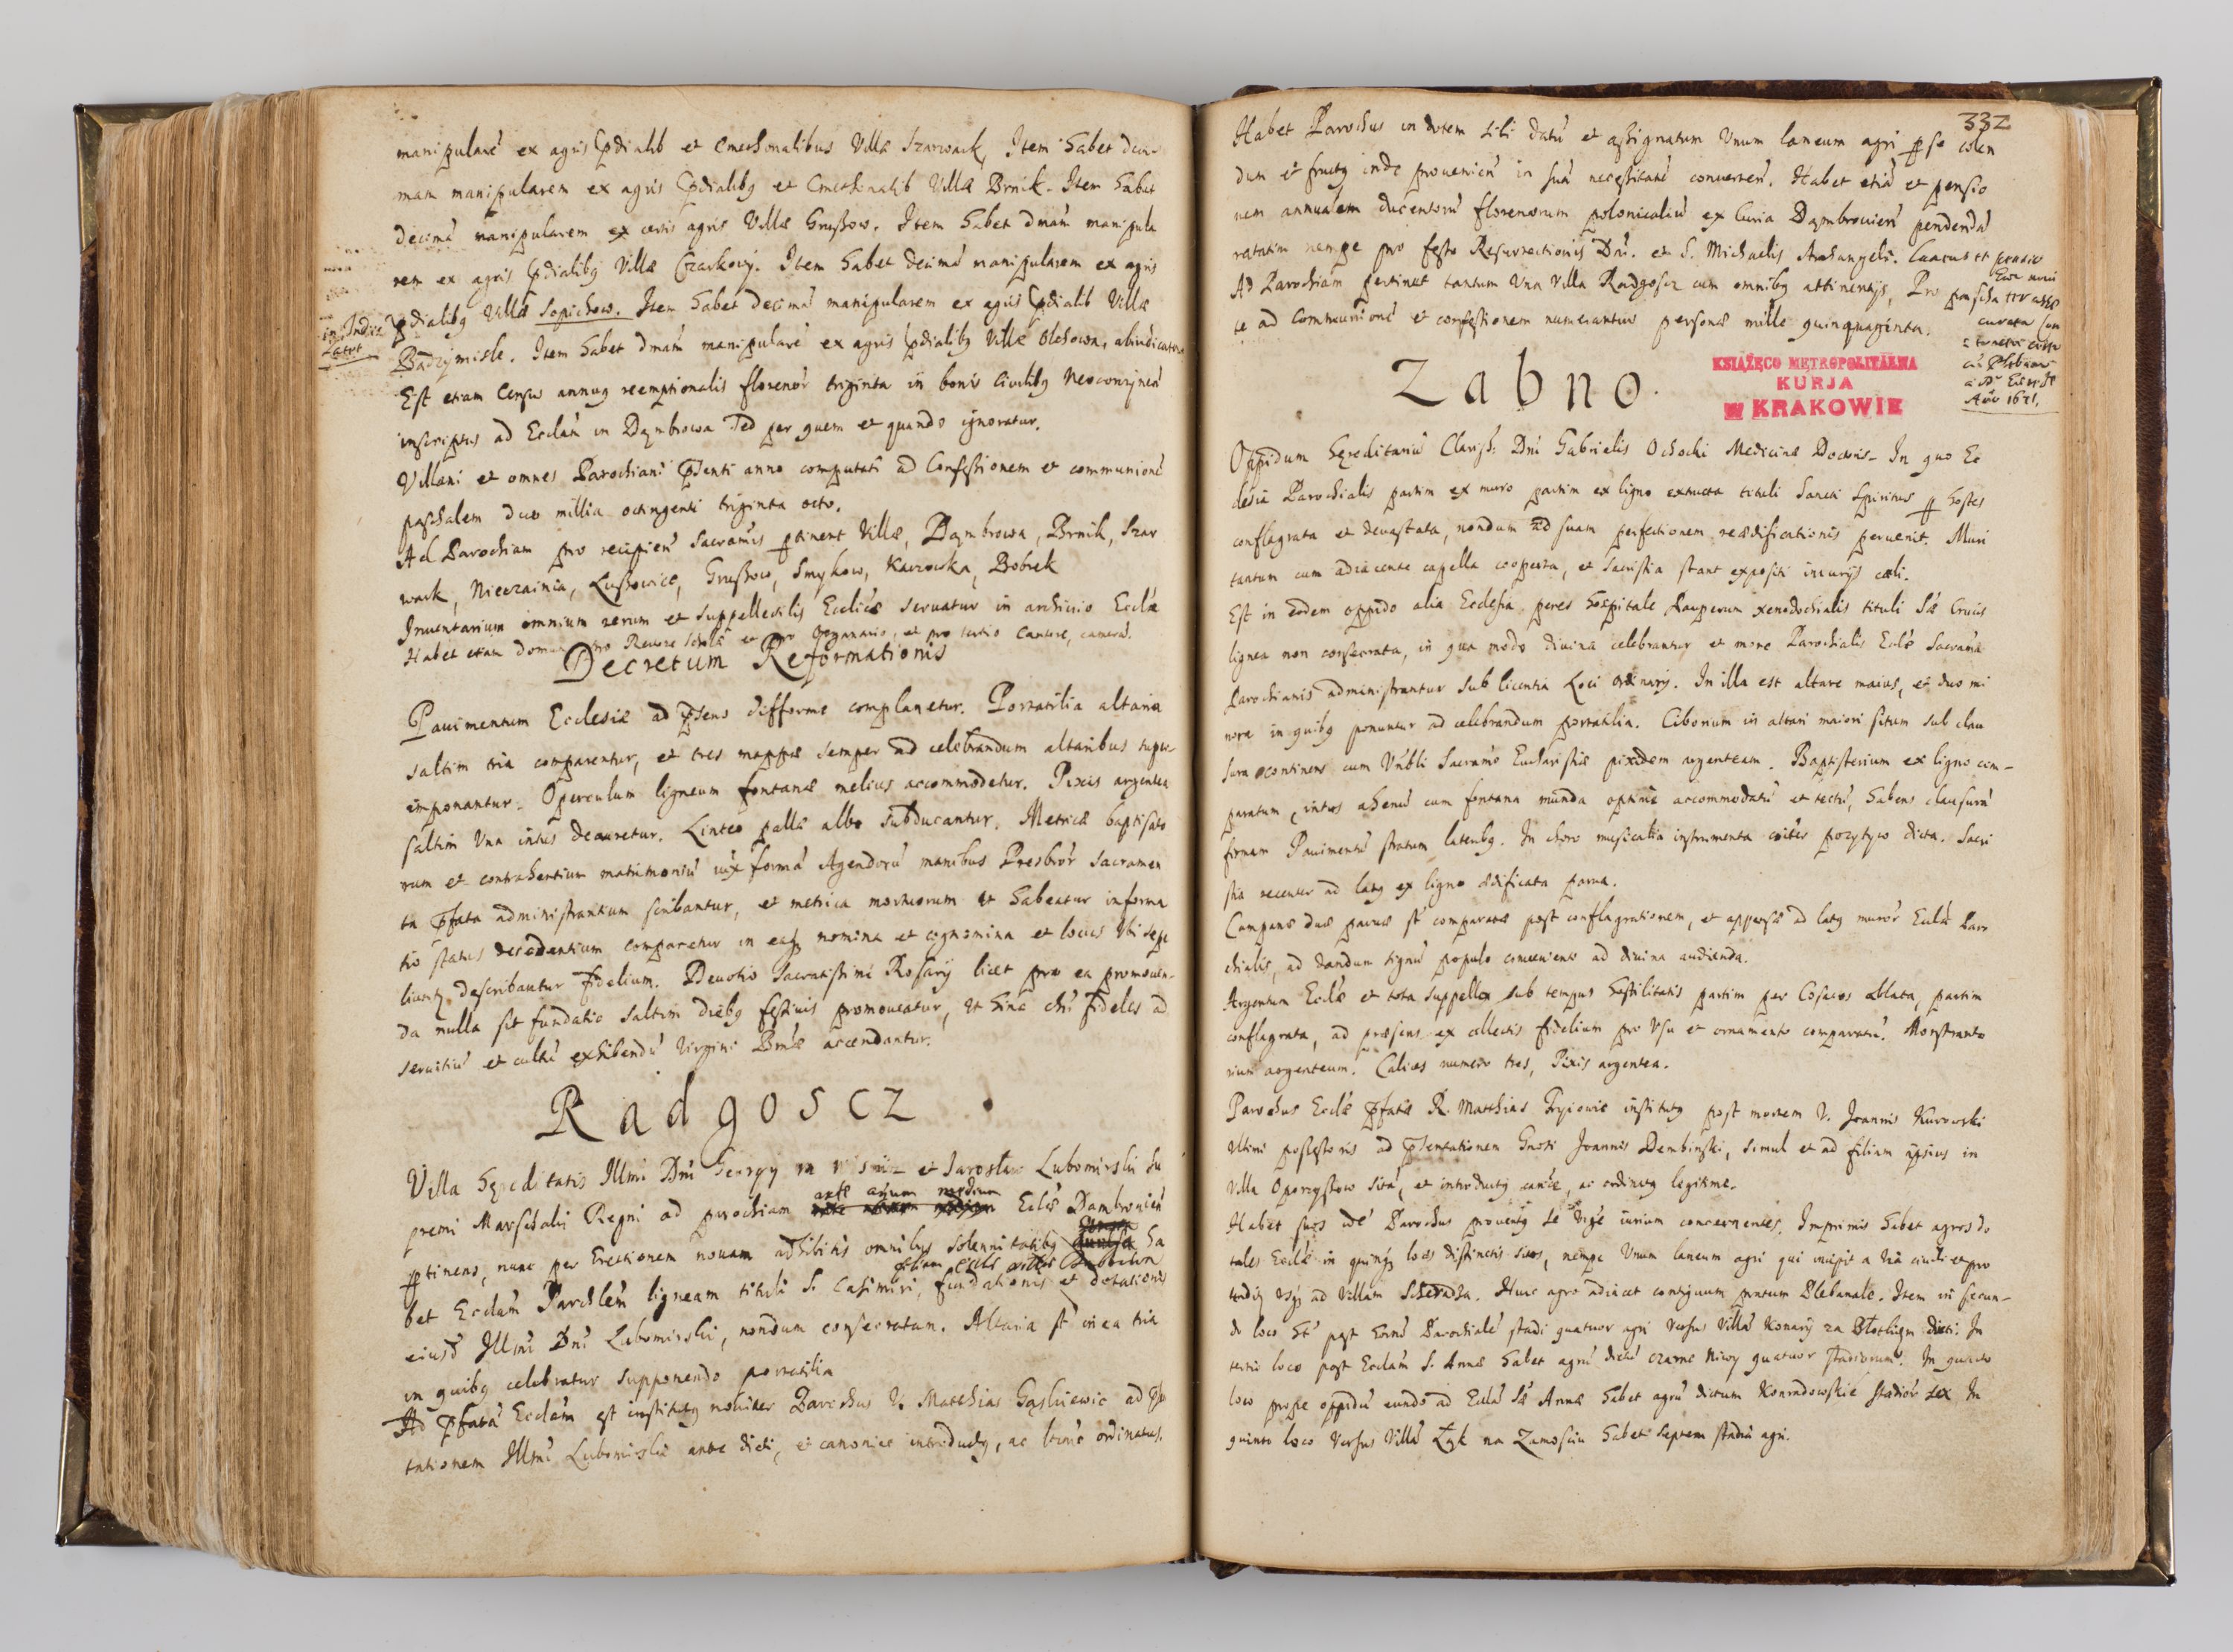 manipularē ex agris p̄dialib et Cmethonalibus Villæ Szarwark, Item habet deci
mam manipularem ex agris p̄dialibq et Cmethonalib Villæ Brnik. Item habet
decimā manipularem ex certis agris Villæ Gruszow. Item habet dmām manipula
rem ex agris p̄dialibq Villæ Czarkowy. Item habet decimā manipularem ex agris
in Indice
p̄dialibq Villæ Sopichow. Item habet decimā manipularem ex agris p̄dialib Villæ
Badrzymisle. Item habet dmām manipularē ex agris p̄dialibq Villæ Olchowa,
Est etiam Census annuq reemptionalis florenor̄ triginta in bonis Civilibq
inscriptus ad Ecclām in Dąmbrowa sed per quem et quando ignoratur.
Villani et omnes Parochiani p̄senti anno computati ad Confessionem et communionē
paschalem duo millia octingenti triginta octo.
Ad Parochiam pro recipien̄ Sacramīs p̄tinent Villæ, Dąmbrowa, Brnik, Szar
wark, Nieczainia, Luszowice, Gruszow, Smykow, Kaczowka, Bobrek
Inventarium omnium rerum et suppellectilis Eccliæ servatur in archivio Ecclæ
Habet etiam domum pro Rectore scholæ et pro Organario, et pro tertio Cantore, camerā.
Decretum Reformationis
Pauimentum Ecclesiæ ad p̄sens difforme complanetur. Portatilia altaria
saltim tria comparentur, et tres mappæ semper ad celebrandum altaribus super
imponantur. Operculum ligneum fontanæ melius accommodetur. Pixis argentea
saltim Una intus deauretur. Linteo pallæ albo subducantur. Metricæ baptisato
rum et contrahentium matrimoniū iux formā Agendorū manibus Presbror̄ Sacramen
ta p̄fata administrantium scribantur, et metrica mortuorum ut habeatur informa
tio status decedentium comparetur in eaq nomina et cognomina et locus Ubi sepe
liuntq describantur fidelium. Deuotio Sacratissimi Rosarij licet pro ea promouen-
da nulla sit fundatio saltim diebq festiuis promoueatur, ut hinc chri fideles ad
seruitiū et cultū exhibendū Virgini Bmæ accendantur.
Radgoscz
Villa hæreditatis Illmi Dni Georgy et Jaroslaw Lubomirski Su
premi Marschalci Regni ad parochiam ante annum medium Eccliæ Dambrouien̄
p̄tinens, nunc per Erectionem nouam adhibitis omnibus solennitatibq ha
bet Ecclām Parchlēm ligneam tituli S. Casimiri, fundationis et dotationis
eiusd̄ Illmi Dni Lubomirski, nondum consecratam. Altaria st̄ in ea tria
in quibq celebratur supponendo portatilia
Ad p̄fatā Ecclām est institutq nouiter Parochus V. Matthias Gąskiewic ad p̄se
tationem Illmi Lubomirski ante dicti, et canonice introductq, ac ltime ordinatus.
332
Habet Parochus in dotem sibi datū et assignatum Unum laneum agri p se colen
dum et fructq inde prouenien̄ in suā necessitatē conuerten̄. Habet etiā et pensio
nem annuālem ducentorū florenorum polonicaliū ex Curia Dąmbrouien̄ pendendā
ratatim nempe pro festo Resurrectionis Dni. et S. Michaelis Archangeli.
Ad Parochiam pertinet tantum Una Villa Radgoscz cum omnibq attinentijs, Pro pascha
te ad Communionē et confessionem numerantur personæ mille quinquaginta.
Año 1671.
Zabno.
KSIĄŻĘCO METROPOLITALNA
KURJA
W KRAKOWIE
Oppidum hæreditariū Clariss: Dni Gabrielis Ochocki Medicinæ Doctoris. In quo Ec
clesia Parochialis partim ex muro partim ex ligno extructa tituli Sancti Spiritus p hostes
conflagrata et deuastata, nondum ad suam perfectionem reædificationis peruenit. Muri
tantum cum adiacente capella cooperta, et sacristia stant expositi iniurijs cæli.
Est in eodem oppido alia Ecclesia penes hospitale Pauperum xenodochialis tituli Sæ Crucis
lignea non consecrata, in qua modo diuina celebrantur et more Parochialis Eccłæ Sacramta
Parochianis administrantur sub licentia Loci Ordinarij. In illa est altare maius, et duo mi
nora in quibq ponuntur ad celebrandum portatilia. Ciborium in altari maiori situm sub clau
sura continens cum Vnbli Sacramō Eucharistiæ pixidem argenteam. Baptisterium ex ligno com-
paratum, intus ahenū cum fontana munda optime accommodatū et tectū, habens clausurā
firmam Pauimentū stratum lateribq. In choro musicalia instrumenta pozytyw dicta. Sacri
stia recenter ad latq ex ligno ædificata parua.
Campanæ duæ paruæ st̄ comparatæ post conflagrationem, et appensæ ad latq muror̄ Ecclæ Paro
chialis, ad dandum signū populo conuenienti ad diuina audienda.
Argentum Ecclæ et tota suppellex sub tempus hostilitatis partim per Cosacos ablata, partim
conflagrata, ad præsens ex collectis fidelium pro Usu et ornamento comparatū. Monstranto
rium argenteum. Calices numero tres, Pixis argentea.
Parochus Ecclæ p̄fatæ R. Matthias institutq post mortem V. Joannis Kurowski
Vltimi possessoris ad p̄sentationem Gnosi Joannis Dembinski, simul et ad filiam ipsius in
Villa Oporzystow sitā, et introductq, ac ordinatq legitime.
Habet suos idē Parochus prouentq iurium concernentes. Imprimis habet agros do
tales Ecclæ in quinq locis distinctis sitos, nempe Unum laneum agri qui incipit a
usq ad Villam Sieradza. Huic agro adiacet contiguum pratum Plebanale. Item in secun-
do loco st̄ post hortū Parochialē stadi quatuor agri Versus Villā Konary za dicti. In
tertio loco post Ecclām S. Annæ habet agrū dictū czarne Niwy quatuor stadiorum. In quarto
loco prope oppidū eundo ad Ecclā Sæ Annæ habet agrū dictum Konradowskie stadior̄ sex In
quinto loco Versus Villā Łęk na Zamosciu habet septem stadia agri.